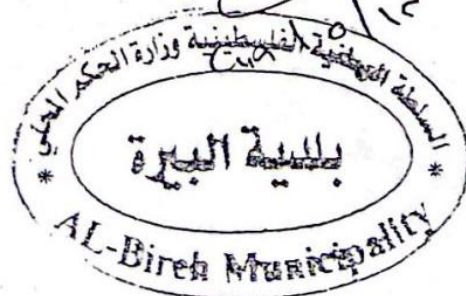 السلطة الوطنية الفلسطينية وزارة الحكم المحلي
بلدية البيرة
AL-Bireh Municipality